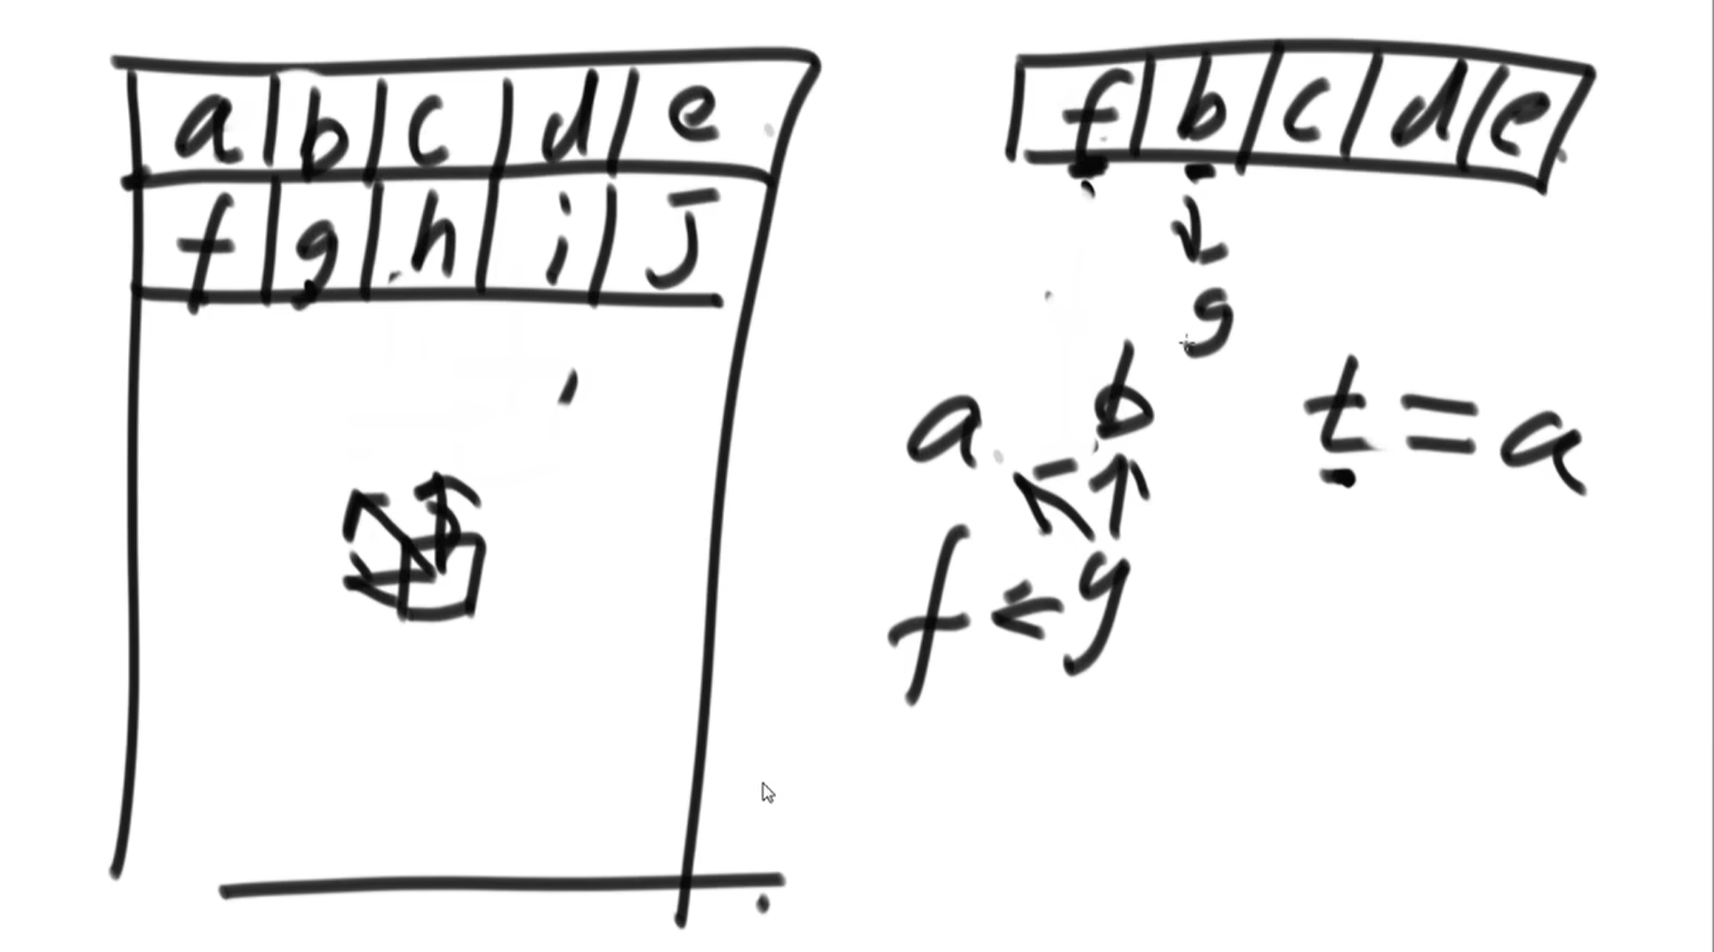 a b c d e
f g h i j
f b c d e
g
a b
t = a
f g